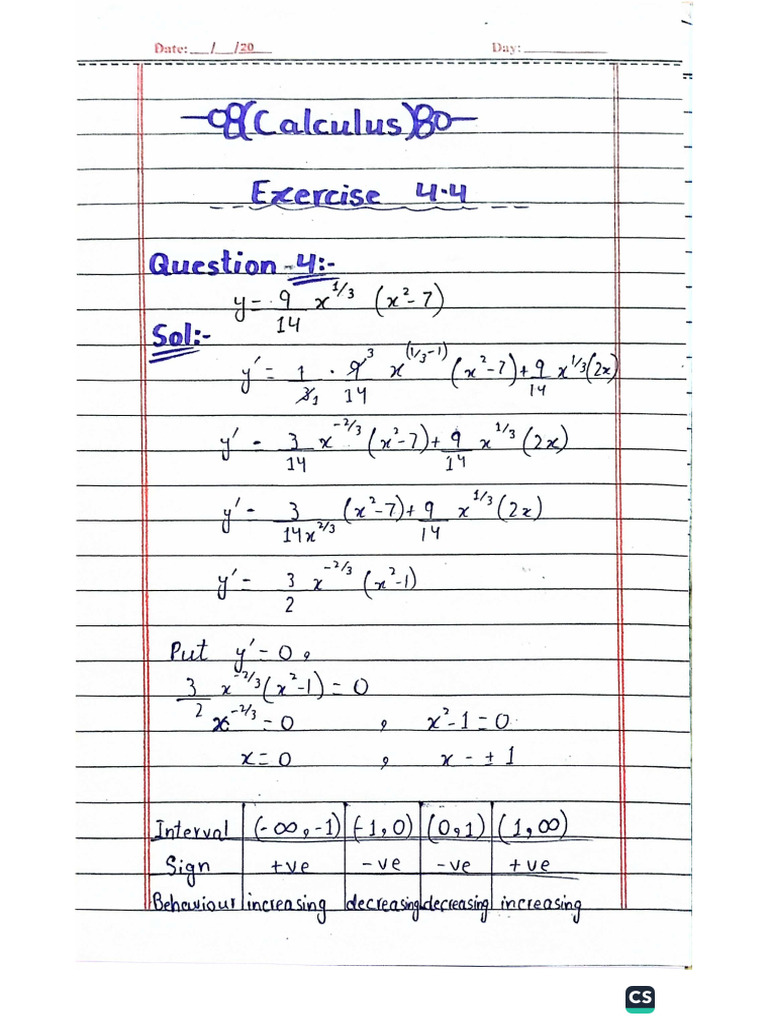 Date: __/__/20__ Day: ________
(Calculus)
Exercise 4.4
Question 4:-
y = 9/14 x^1/3 (x²-7)
Sol:-
y' = 1/3 1 · 9 3/14 x^(1/3-1) (x²-7) + 9/14 x^1/3 (2x)
y' = 3/14 x^-2/3 (x²-7) + 9/14 x^1/3 (2x)
y' = 3/14x^2/3 (x²-7) + 9/14 x^1/3 (2x)
y' = 3/2 x^-2/3 (x²-1)
Put y' = 0,
3/2 x^-2/3 (x²-1) = 0
x^-2/3 = 0 , x²-1 = 0
x = 0 , x - ± 1
Interval (-∞,-1) (-1,0) (0,1) (1,∞)
Sign +ve -ve -ve +ve
Behaviour increasing decreasing decreasing increasing
CS